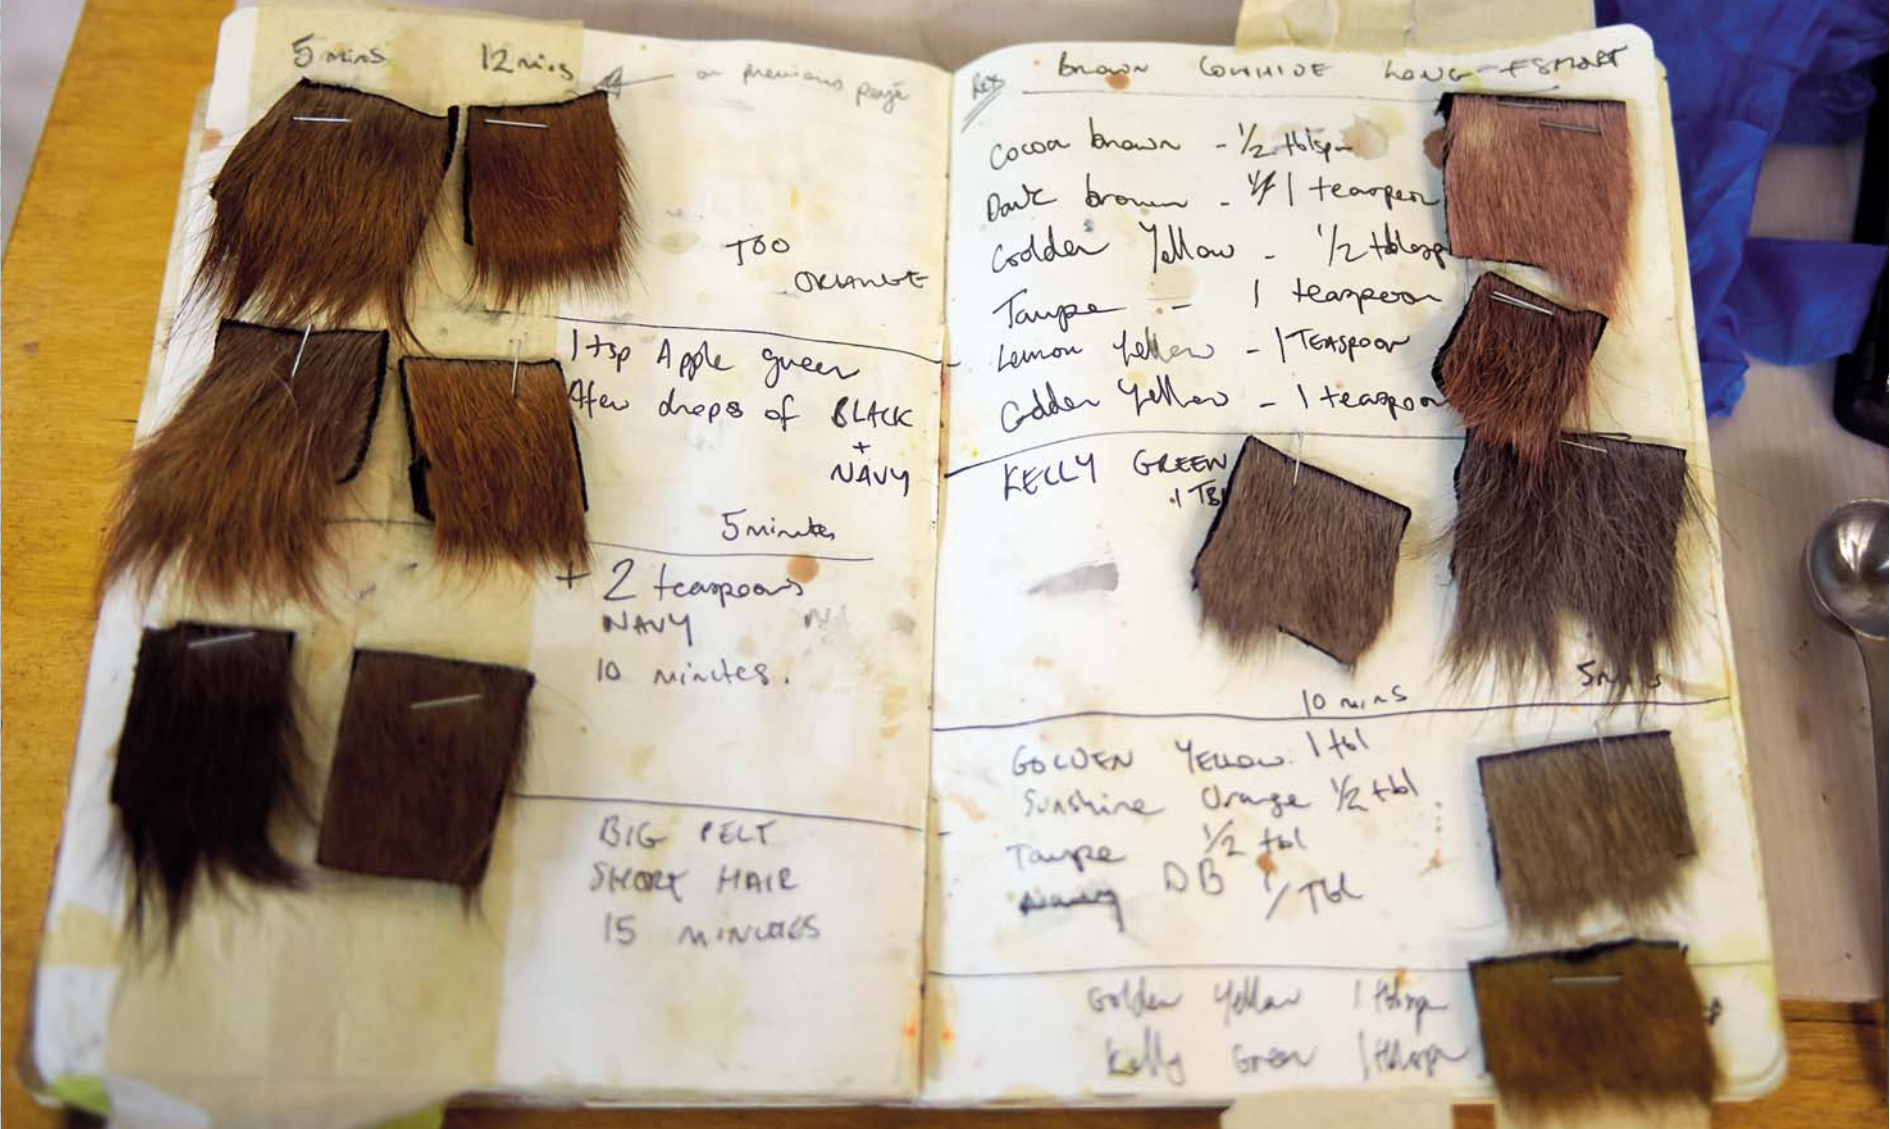 5 mins 12 mins
on previous page
TOO
ORANGE
1 tsp Apple green
A few drops of BLACK
+
NAVY
5 minutes
+ 2 teaspoons
NAVY
10 minutes.
BIG PELT
SHORT HAIR
15 MINUTES
brown COWHIDE LONG +
Cocoa brown - 1/2 tblspn
Dark brown - 1 teaspoon
Golden Yellow - 1/2 tblesp
Taupe - 1 teaspoon
Lemon Yellow - 1 TEASPOON
Golden Yellow - 1 teaspoon
KELLY GREEN
1 TB
10 mins
5
GOLDEN YELLOW 1 tbl
Sunshine Orange 1/2 tbl
Taupe 1/2 tbl
DB 1 Tbl
Golden Yellow 1 tblsp
Kelly Green 1 tblsp